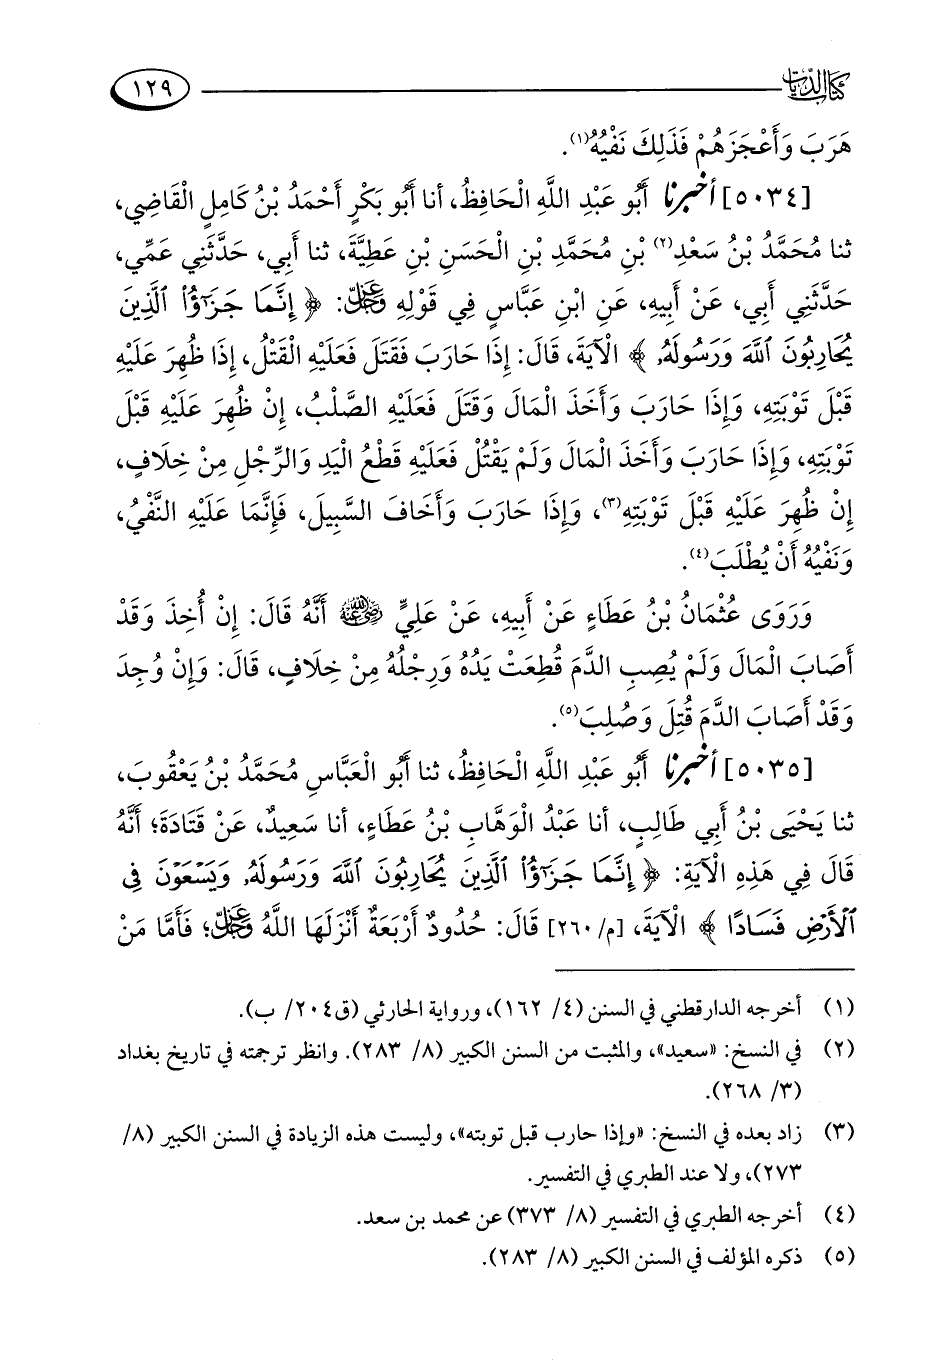 كتاب الديات ١٢٩
هَرَبَ وَأَعْجَزَهُمْ فَذَلِكَ نَفْيُهُ(١).
[٥٠٣٤] أخبرنا أَبُو عَبْدِ اللَّهِ الْحَافِظُ، أنا أَبُو بَكْرٍ أَحْمَدُ بْنُ كَامِلٍ الْقَاضِي،
ثنا مُحَمَّدُ بْنُ سَعْدِ(٢) بْنِ مُحَمَّدِ بْنِ الْحَسَنِ بْنِ عَطِيَّةَ، ثنا أَبِي، حَدَّثَنِي عَمِّي،
حَدَّثَنِي أَبِي، عَنْ أَبِيهِ، عَنِ ابْنِ عَبَّاسٍ فِي قَوْلِهِ عَزَّ وَجَلَّ: ﴿ إِنَّمَا جَزَٰٓؤُا۟ ٱلَّذِينَ
يُحَارِبُونَ ٱللَّهَ وَرَسُولَهُۥ ﴾ الْآيَةَ، قَالَ: إِذَا حَارَبَ فَقَتَلَ فَعَلَيْهِ الْقَتْلُ، إِذَا ظُهِرَ عَلَيْهِ
قَبْلَ تَوْبَتِهِ، وَإِذَا حَارَبَ وَأَخَذَ الْمَالَ وَقَتَلَ فَعَلَيْهِ الصَّلْبُ، إِنْ ظُهِرَ عَلَيْهِ قَبْلَ
تَوْبَتِهِ، وَإِذَا حَارَبَ وَأَخَذَ الْمَالَ وَلَمْ يَقْتُلْ فَعَلَيْهِ قَطْعُ الْيَدِ وَالرِّجْلِ مِنْ خِلَافٍ،
إِنْ ظُهِرَ عَلَيْهِ قَبْلَ تَوْبَتِهِ(٣)، وَإِذَا حَارَبَ وَأَخَافَ السَّبِيلَ، فَإِنَّمَا عَلَيْهِ النَّفْيُ،
وَنَفْيُهُ أَنْ يُطْلَبَ(٤).
وَرَوَى عُثْمَانُ بْنُ عَطَاءٍ عَنْ أَبِيهِ، عَنْ عَلِيٍّ رضي الله عنه أَنَّهُ قَالَ: إِنْ أُخِذَ وَقَدْ
أَصَابَ الْمَالَ وَلَمْ يُصِبِ الدَّمَ قُطِعَتْ يَدُهُ وَرِجْلُهُ مِنْ خِلَافٍ، قَالَ: وَإِنْ وُجِدَ
وَقَدْ أَصَابَ الدَّمَ قُتِلَ وَصُلِبَ(٥).
[٥٠٣٥] أخبرنا أَبُو عَبْدِ اللَّهِ الْحَافِظُ، ثنا أَبُو الْعَبَّاسِ مُحَمَّدُ بْنُ يَعْقُوبَ،
ثنا يَحْيَى بْنُ أَبِي طَالِبٍ، أنا عَبْدُ الْوَهَّابِ بْنُ عَطَاءٍ، أنا سَعِيدٌ، عَنْ قَتَادَةَ؛ أَنَّهُ
قَالَ فِي هَذِهِ الْآيَةِ: ﴿ إِنَّمَا جَزَٰٓؤُا۟ ٱلَّذِينَ يُحَارِبُونَ ٱللَّهَ وَرَسُولَهُۥ وَيَسْعَوْنَ فِى
ٱلْأَرْضِ فَسَادًا ﴾ الْآيَةَ، [م/٢٦٠] قَالَ: حُدُودٌ أَرْبَعَةٌ أَنْزَلَهَا اللَّهُ عَزَّ وَجَلَّ؛ فَأَمَّا مَنْ
(١) أخرجه الدارقطني في السنن (٤/ ١٦٢)، ورواية الحارثي (ق٢٠٤/ ب).
(٢) في النسخ: «سعيد»، والمثبت من السنن الكبير (٨/ ٢٨٣). وانظر ترجمته في تاريخ بغداد
(٣/ ٢٦٨).
(٣) زاد بعده في النسخ: «وإذا حارب قبل توبته»، وليست هذه الزيادة في السنن الكبير (٨/
٢٧٣)، ولا عند الطبري في التفسير.
(٤) أخرجه الطبري في التفسير (٨/ ٣٧٣) عن محمد بن سعد.
(٥) ذكره المؤلف في السنن الكبير (٨/ ٢٨٣).